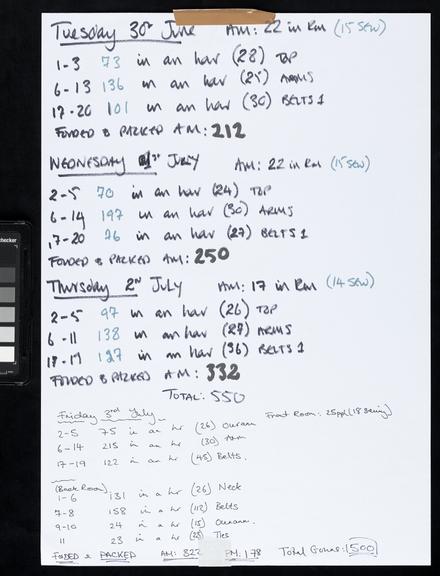 Tuesday 30th June AM: 22 in Rm (15 SEW)
1-3 73 in an har (28) TOP
6-13 136 in an har (25) ARMS
17-20 101 in an har (30) BELTS 1
FOLDED & PACKED AM: 212
WEDNESDAY 1st JULY AM: 22 in Rm (15 SEW)
2-5 70 in an har (24) TOP
6-14 197 in an har (30) ARMS
17-20 76 in an har (27) BELTS 1
FOLDED & PACKED AM: 250
Thursday 2nd JULY AM: 17 in Rm (14 SEW)
2-5 97 in an har (26) TOP
6-11 138 in an har (27) ARMS
127 in an har (36) BELTS 1
FOLDED & PACKED AM: 332
TOTAL: 550
Friday 3rd July Front Room: 25ppl (18 Sewing)
2-5 75 in an hr (26)
6-14 215 in an hr (30) Arm
17-19 122 in an hr (45) Belts.
(Back Room)
1-6 131 in a hr (26) Neck
7-8 158 in a hr (112) Belts
9-10 24 in a hr (15)
11 23 in a hr Ties
FOLDED & PACKED AM: 322 PM: 178 Total Gowns: 500
checker